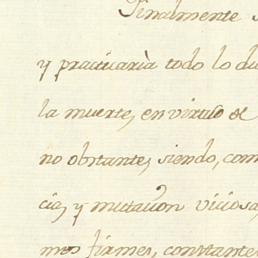 Finalmente
y practicarà todo lo du
la muerte, en virtud de
no obstante, siendo, com
cia, y mutacion viciosa
mas firmes, constante